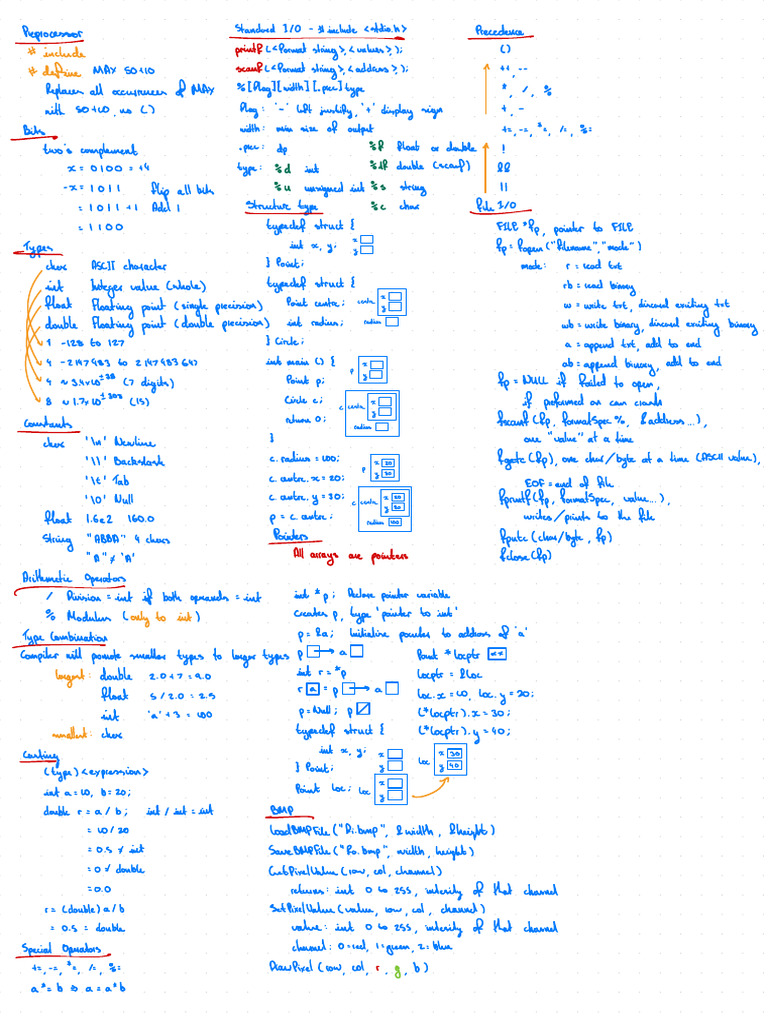 Preprocessor
# include
# define MAX 50+10
Replaces all occurrences of MAX
with 50+10, no ()
Bits
two's complement
x = 0100 = +4
-x = 1011 flip all bits
= 1011 +1 Add 1
= 1100
Types
char ASCII character
int Integer value (whole)
float Floating point (single precision)
double Floating point (double precision)
1 -128 to 127
4 -2147483 to 2147483647
4 ≈ 3.4x10^±38 (7 digits)
8 ≈ 1.7x10^±308 (15)
Constants
char '\n' Newline
'\\' Backslash
'\t' Tab
'\0' Null
float 1.6e2 160.0
string "ABBA" 4 chars
"A" ≠ 'A'
Arithmetic Operators
/ Division = int if both operands = int
% Modulus (only to int)
Type Combination
Compiler will pomote smaller types to larger types
largest: double 2.0+7 = 9.0
float 5/2.0 = 2.5
int 'a'+3 = 100
smallest: char
Casting
(type)<expression>
int a=10, b=20;
double r = a/b; int/int = int
= 10/20
= 0.5 ≠ int
= 0 ≠ double
= 0.0
r = (double) a/b
= 0.5 = double
Special Operators
+=, -=, *=, /=, %=
a*=b => a=a*b
Standard I/O - # include <stdio.h>
printf(<format string>, <values>);
scanf(<format string>, <address>);
%[flag][width][.prec]type
flag: '-' left justify, '+' display sign
width: min size of output
.prec: dp %f float or double
type: %d int %lf double (scanf)
%u unsigned int %s string
%c char
Structure type
typedef struct {
int x, y; x
y
} Point;
typedef struct {
Point centre; centre x
y
int radius; radius
} Circle;
int main () {
Point p; p x
y
Circle c; c centre x
y
return 0; radius
}
c.radius = 100; p x 20
c.centre.x = 20; y 30
c.centre.y = 30; c centre x 20
p = c.centre; y 30
radius 100
Pointers
All arrays are pointers
int *p; Declare pointer variable
creates p, type 'pointer to int'
p = &a; Initialise pointer to address of 'a'
p a
int r = *p
r a = p a
p = Null; p
typedef struct {
int x, y; x
} Point; y
Point loc; loc x
y
Point *locptr
locptr = &loc
loc.x = 10, loc.y = 20;
(*locptr).x = 30;
(*locptr).y = 40;
loc x 30
y 40
BMP
LoadBMPFile("fi.bmp", &width, &height)
SaveBMPFile("fo.bmp", width, height)
GetPixelValue (row, col, channel)
returns: int 0 to 255, intensity of that channel
SetPixelValue (value, row, col, channel)
value: int 0 to 255, intensity of that channel
channel: 0=red, 1=green, 2=blue
DrawPixel (row, col, r, g, b)
Precedence
()
++, --
*, /, %
+, -
+=, -=, *=, /=, %=
!
&&
||
File I/O
FILE *fp, pointer to FILE
fp = fopen("filename", "mode")
mode: r = read txt
rb = read binary
w = write txt, discard exiting txt
wb = write binary, discard exiting binary
a = append txt, add to end
ab = append binary, add to end
fp = NULL if failed to open,
if preformed on can crash
fscanf (fp, formatSpec %, &address...),
one "value" at a time
fgetc(fp), one char/byte at a time (ASCII value),
EOF = end of file
fprintf(fp, formatSpec, value...),
writes/prints to the file
fputc (char/byte, fp)
fclose(fp)